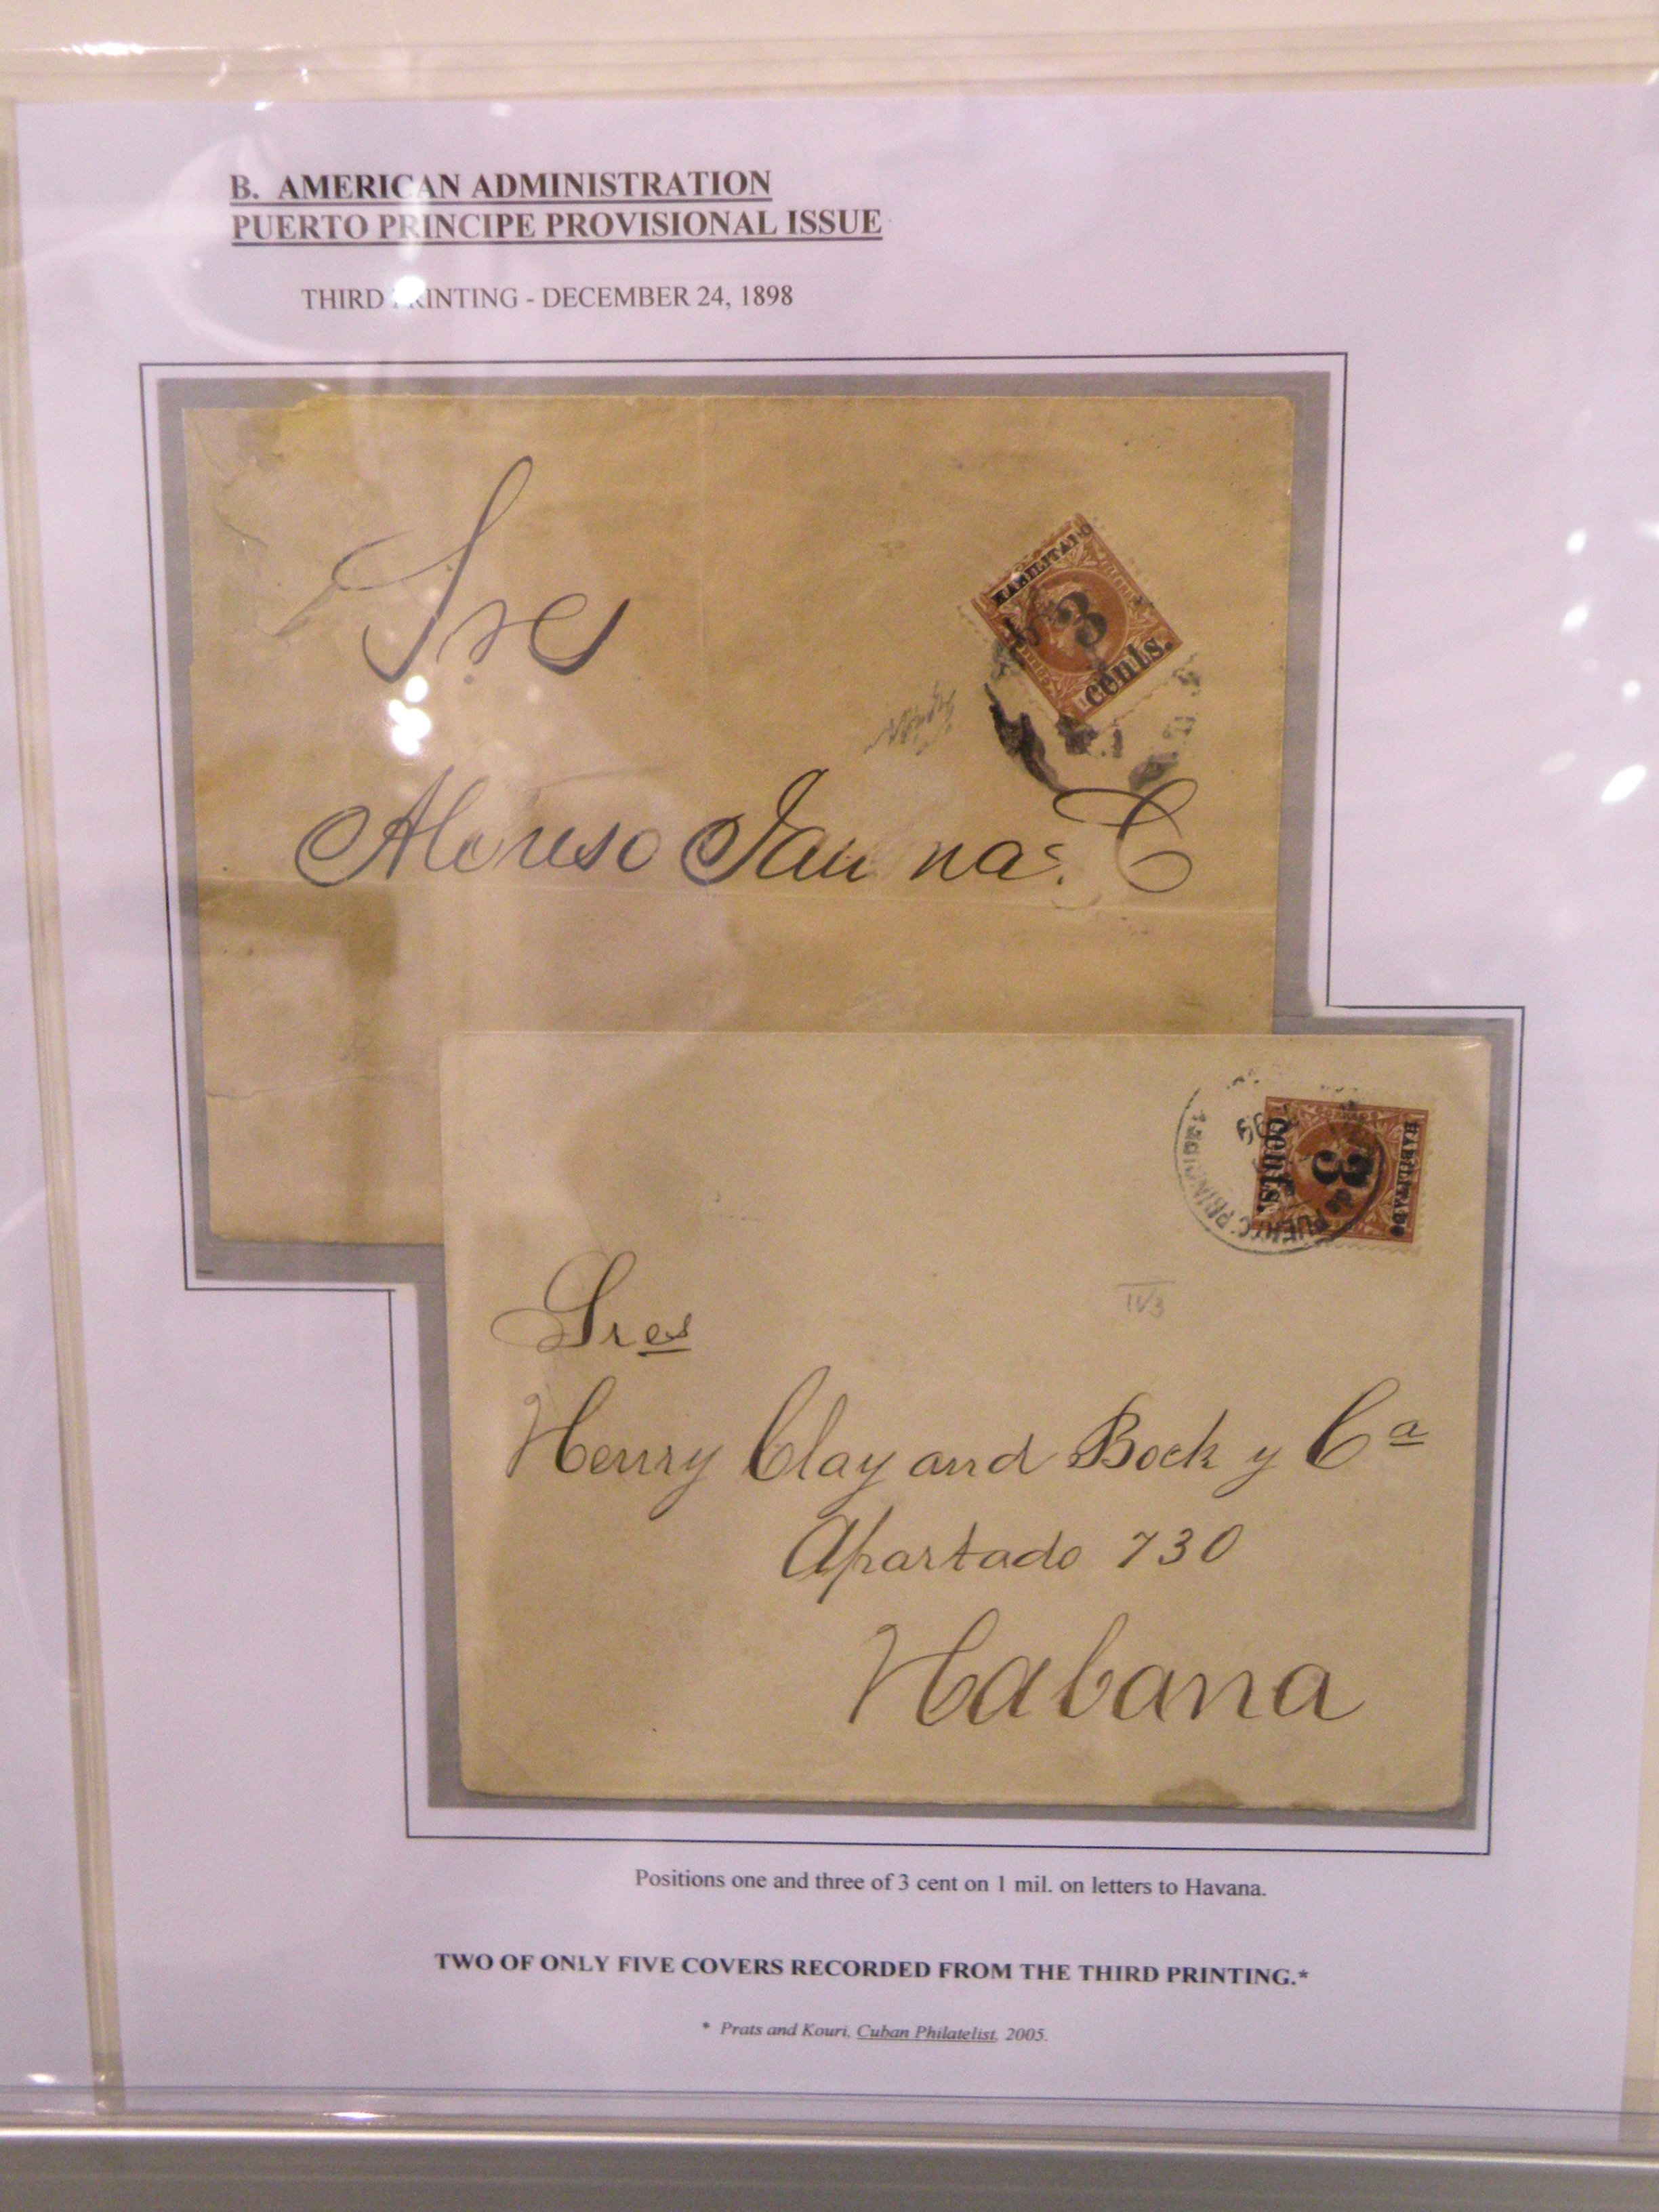 B. AMERICAN ADMINISTRATION
PUERTO PRINCIPE PROVISIONAL ISSUE
THIRD PRINTING - DECEMBER 24, 1898
HABILITADO
3
cents.
Sres
Alonso Jauma y C
HABILITADO
3
cents.
CORREOS
99
PUERTO PRINCIPE
IV3
Sres
Henry Clay and Bock y Ca
Apartado 730
Habana
Positions one and three of 3 cent on 1 mil. on letters to Havana.
TWO OF ONLY FIVE COVERS RECORDED FROM THE THIRD PRINTING.*
* Prats and Kouri, Cuban Philatelist, 2005.